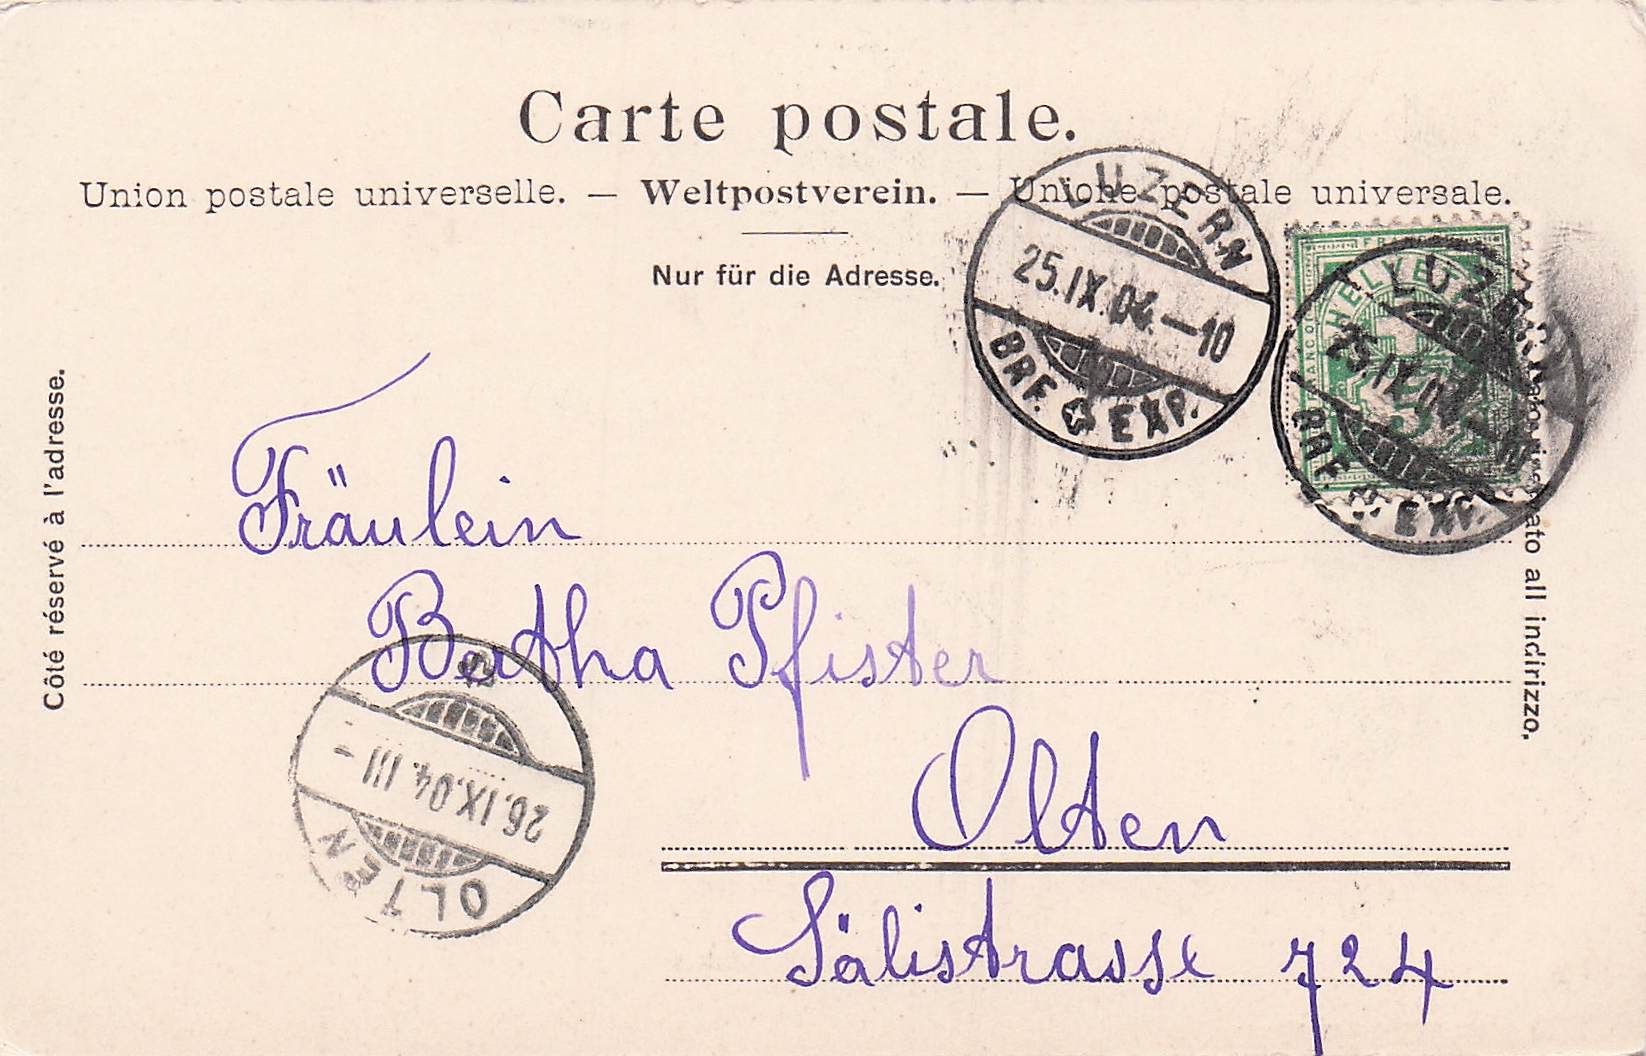 Carte postale.
Union postale universelle. — Weltpostverein. — Unione postale universale.
Nur für die Adresse.
LUZERN
25.IX.04.–10
BRF. EXP.
FRANCO
HELVETIA
5
LUZERN
25.IX.04
BRF. EXP.
Côté réservé à l'adresse.
all indirizzo.
Fräulein
Bertha Pfister
Olten
Sälistrasse 724
26.IX.04. III –
OLTEN